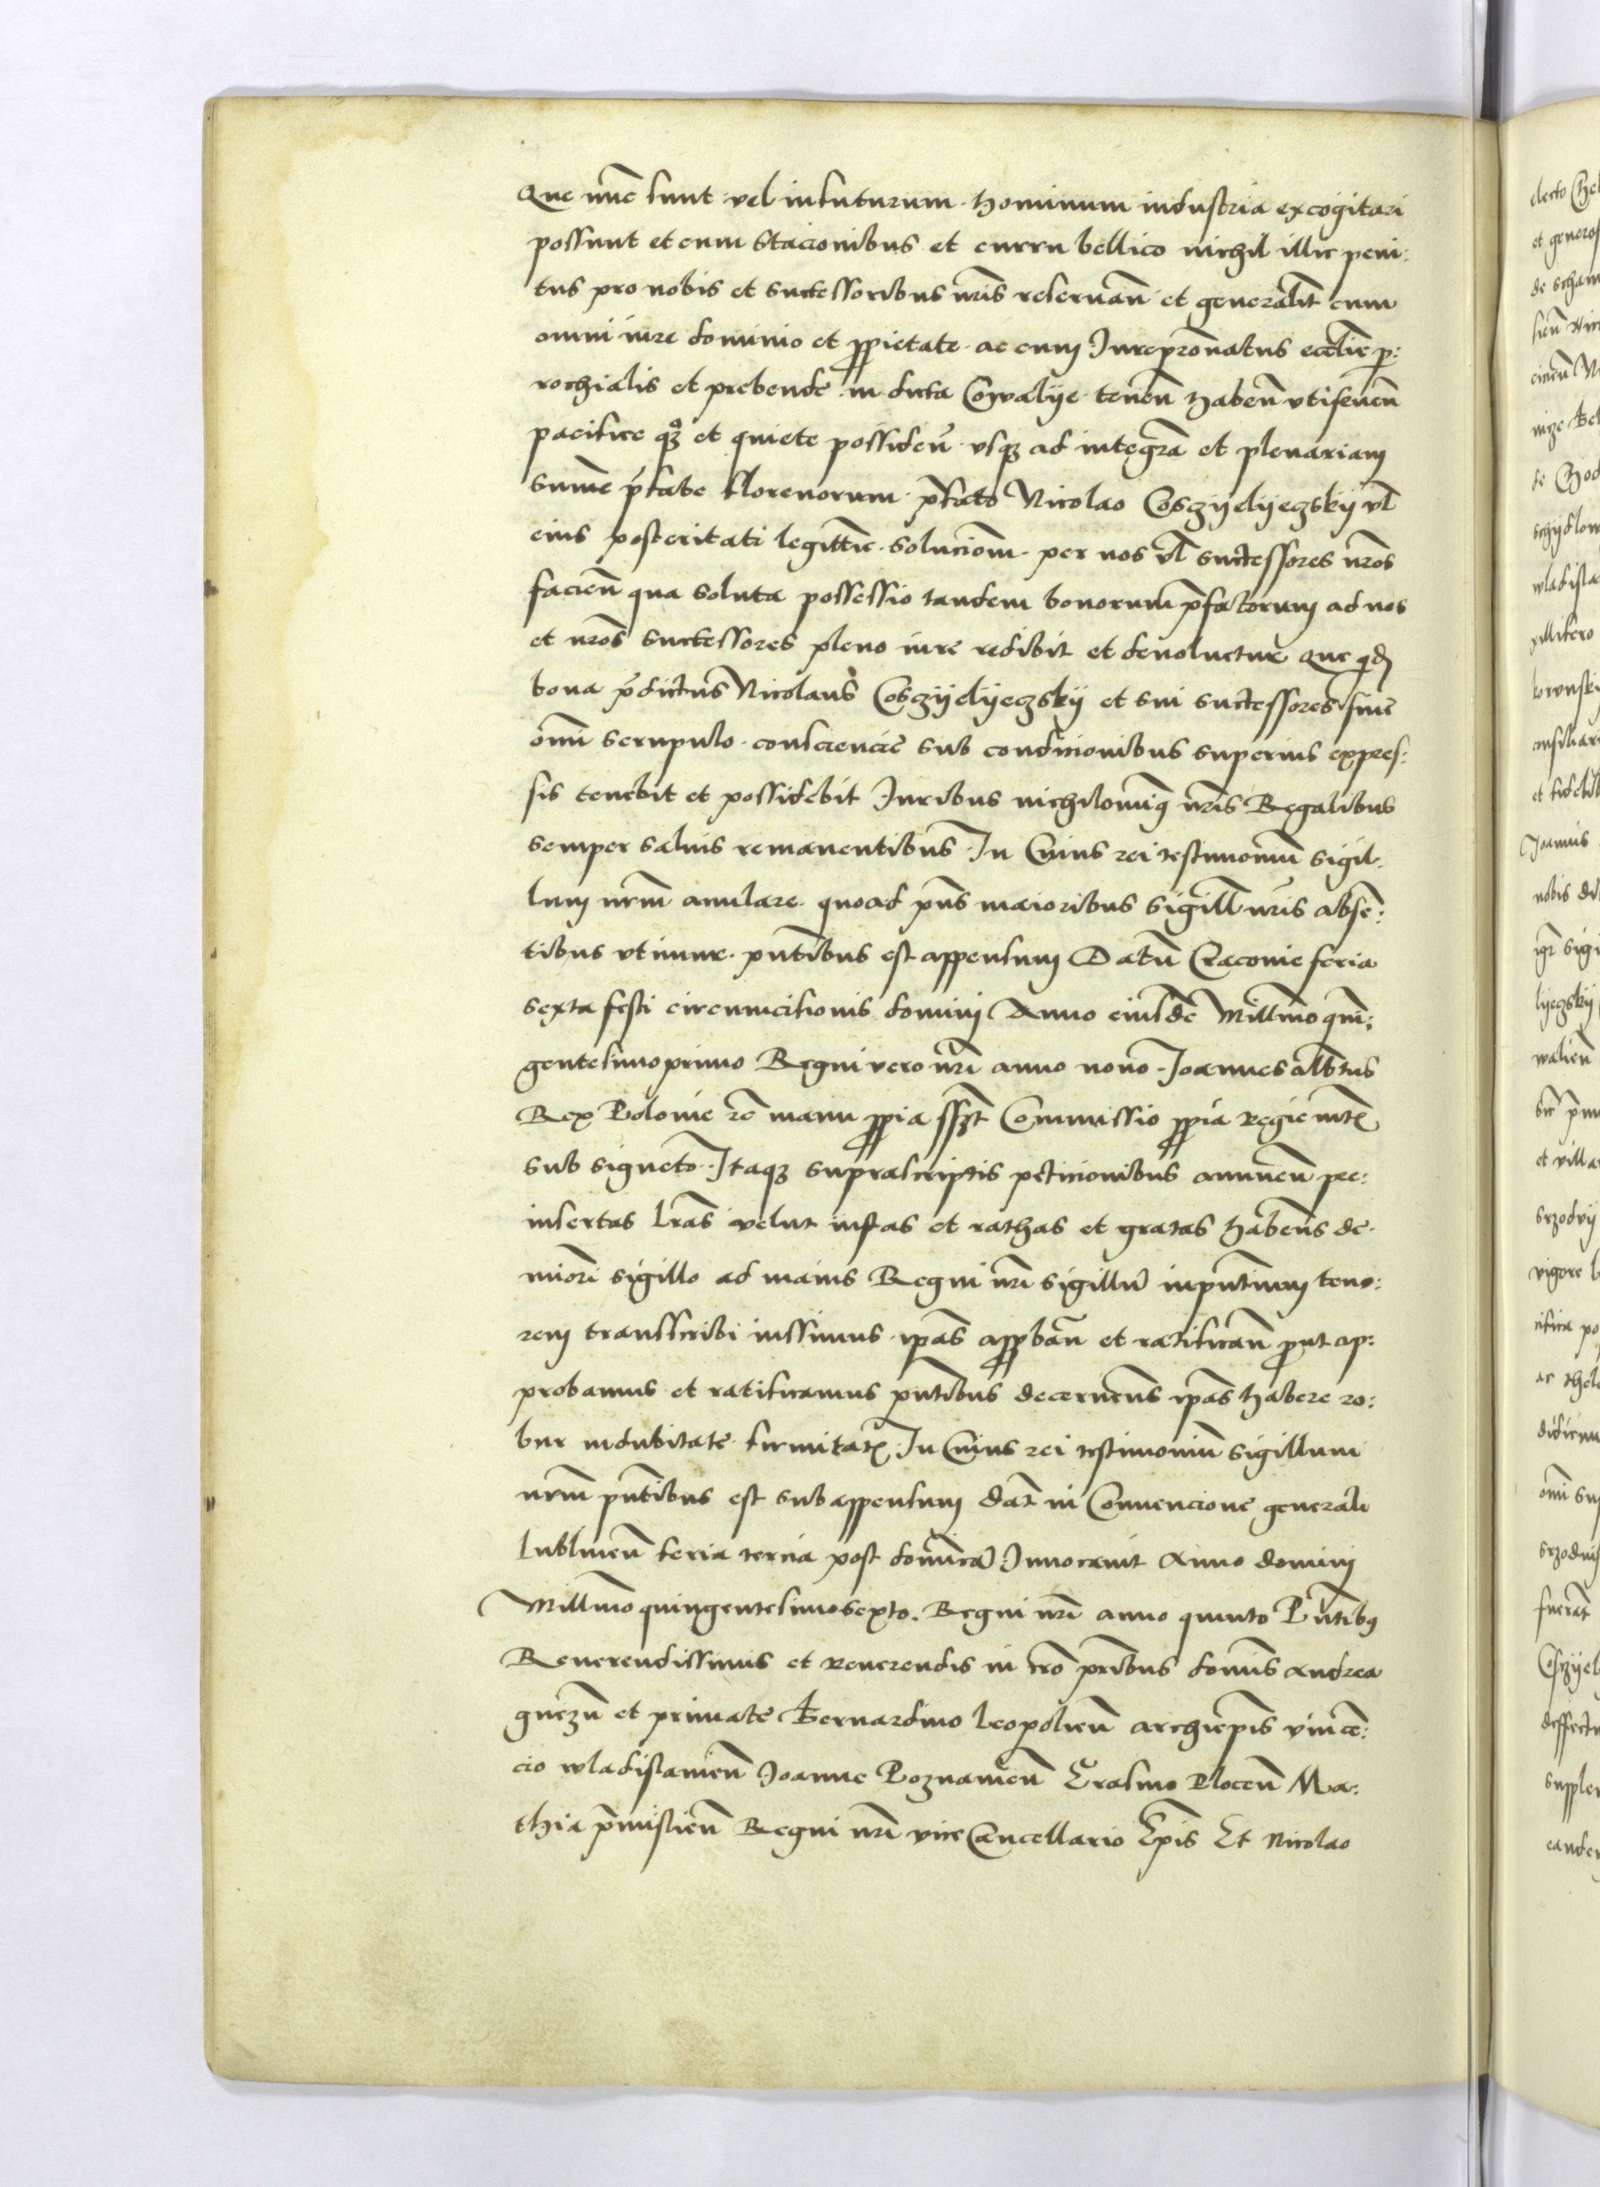 Que nũc sunt vel in futurum hominum industria excogitari
possunt et cum stacionibus et curru bellico nichil illic peni:
tus pro nobis et successoribus nr̃is reseruañ et generalit̃ cum
omni iure dominio et ꝓprietate ac cum Jurepatronatus eccl̃ie p:
rochialis et prebende in dicta Cowalije teneñ habeñ vtifrueñ
pacifice qꝫ et quiete possideñ vsqꝫ ad integrã et plenariam
sum̃e p̃fate florenorum p̃fato Nicolao Cosczijelijeczskij vl̃
eius posteritati legittĩe solucioñ per nos vl̃ successores nr̃os
facieñ qua soluta possessio tandem bonorum p̃fatorum ad nos
et nr̃os successores pleno iure redibit et deuoluetur Que qd̃
bona p̃dictus Nicolaus Cosczijelijeczskij et sui successores sine
om̃i scrupulo consciencie sub condicionibus superius expres:
sis tenebit et possidebit Juribus nichilomiꝰ nr̃is Regalibus
semper saluis remanentibus In Cuius rei testimoniũ sigil:
lum nr̃m anulare quoad pñs maioribus sigill̃ nr̃is absẽ:
tibus vtimur pñtibus est appensum Datũ Cracouie feria
sexta festi circumcisionis domini Anno eiusdẽ Mill̃mo quĩ:
gentesimoprimo Regni vero nr̃i anno nono Joannes alb̃tus
Rex Polonie rc̃ manu ꝓpria sszt̃ Commissio ꝓpria Regie mtꝭ
sub signeto Itaqꝫ suprascriptis peticionibus annueñ pre:
insertas lr̃as velut iustas et rathas et gratas habeñs de
miori sigillo ad maius Regni nr̃i sigillũ in pñtium teno:
rem transscribi iussimus ip̃as apꝓbañ et ratificañ prout ap:
probamus et ratificamus pñtibus decerneñs ip̃as habere ro:
bur indubitate firmitatꝭ In Cuius rei testimoniũ sigillum
nr̃m pñtibus est subappensum dat̃ in Conuencione generali
lublineñ feria tercia post dom̃icã Inuocauit Anno domini
Mill̃mo quingentesimosexto Regni nr̃i anno quinto Pñtibꝰ
Reuerendissimis et reuerendis in xr̃o pr̃ibus dom̃is Andrea
gnezñ et primate Bernardino leopolieñ archiep̃is vincẽ:
cio wladislauieñ Joanne Poznanieñ Erasmo Ploceñ Ma:
thia p̃mislieñ Regni nr̃i viceCancellario Ep̃is Et Nicolao